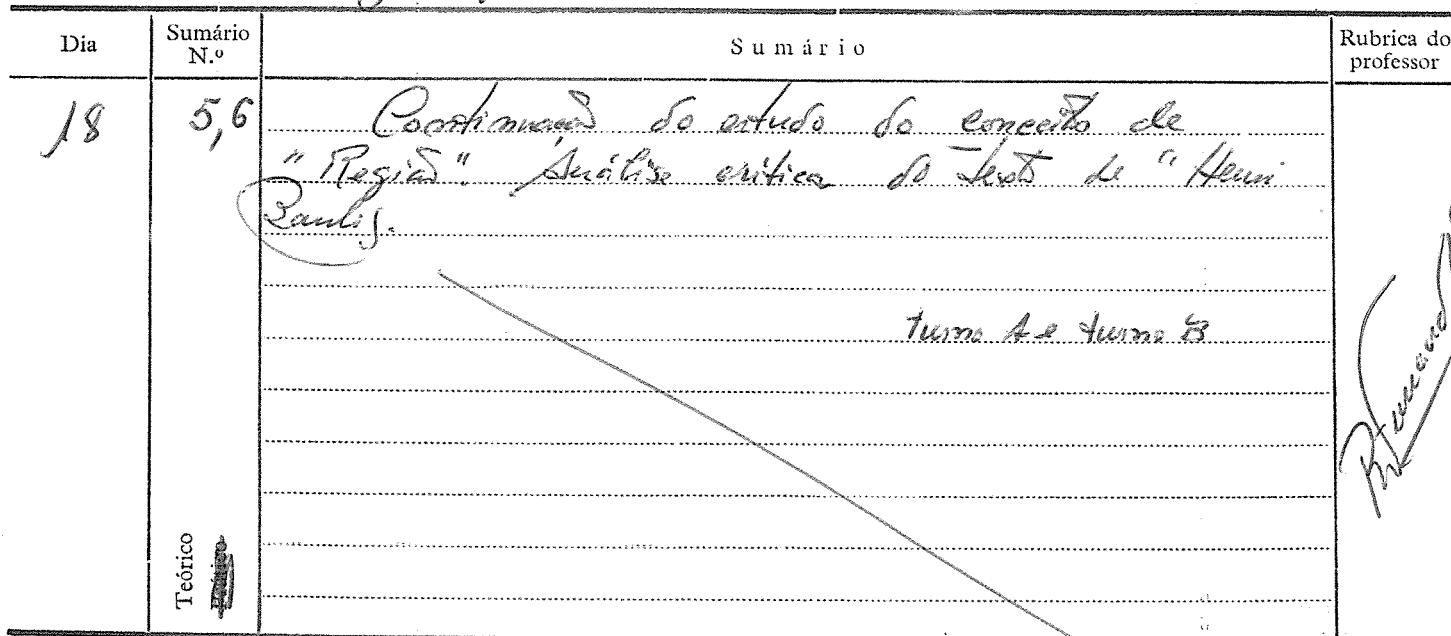 Dia
Sumário N.º
Sumário
Rubrica do professor
18
5,6
Continuação do estudo do conceito de
"Região". Análise crítica do texto de "Henri
turno A e turno B
Teórico